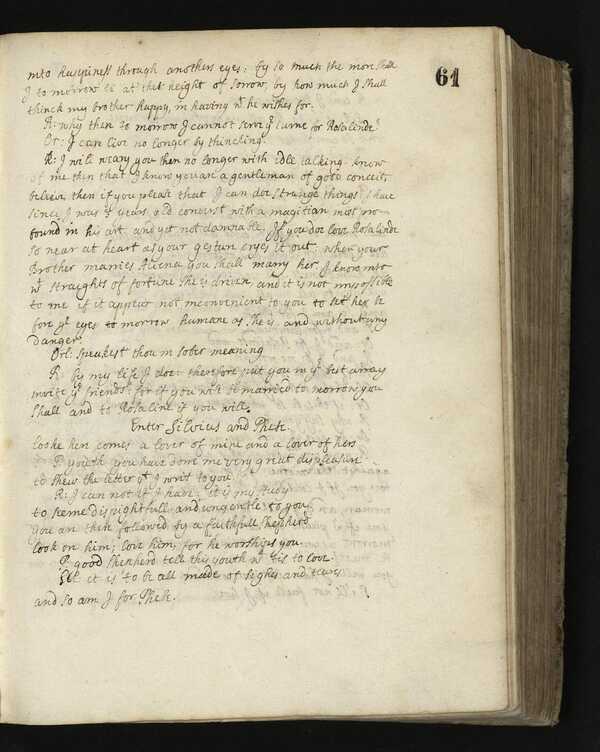 61
into happiness through anothers eyes: by so much the more shall
I to morrow be at the height of sorrow by how much I shall
thinck my brother happy, in having wt he wishes for.
R: why then to morrow I cannot serve yr turne for Rosalinde
Or: I can live no longer by thinking.
R: I will weary you then no longer with idle talking. know
of me then that I know you are a gentleman of good conceit,
beleive then if you please that I can doe strange things I have
since I was 3 years old converst with a magitian most pro
found in his art, and yet not damnable, If you doe love Rosalinde
so near at heart as your gesture cryes it out: when your
Brother marries Aliena you shall marry her I know into
wt straights of fortune she is driven and it is not impossible
to me if it appear not inconvenient to you to set her be
fore yr eyes to morrow humane as she is and without any
Danger
Orl: speakest thou in sober meaning
R by my life I doe therefore put you in yr best array
invite yr friends: for if you will be married to morrow you
shall and to Rosaline if you will.
Enter Silvius and Phebe.
looke here comes a lover of mine and a lover of hers
P youth you have done me very great displeasure
to shew the letter yt I writ to you
R: I can not if I have: it is my study
to seeme dispightfull and ungentle to you
you are there followed by a faithfull shepherd
look on him; love him; for he worships you.
P good shepherd tell this youth wt tis to love.
Sil it is to be all made of sighes and teares
and so am I for Phebe.